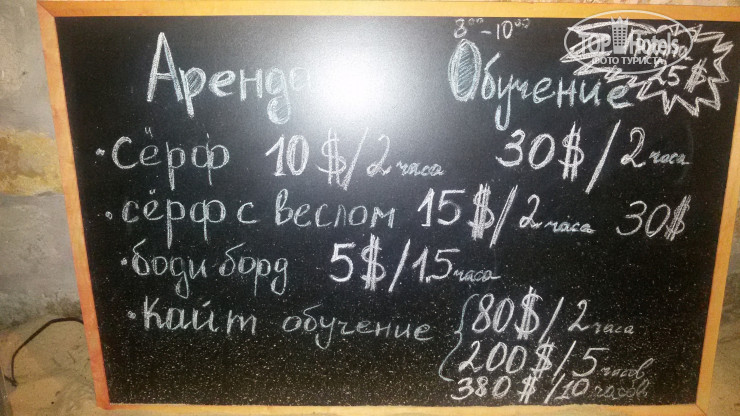 8⁰⁰-10⁰⁰
Аренда Обучение
25$
TOP Hotels
ФОТО ТУРИСТА
• сёрф 10$/2 часа 30$/2 часа
• сёрф с веслом 15$/2 часа 30$
• боди борд 5$/1.5 часа
• Кайт обучение {80$/2 часа
200$/5 часов
380$/10 часов